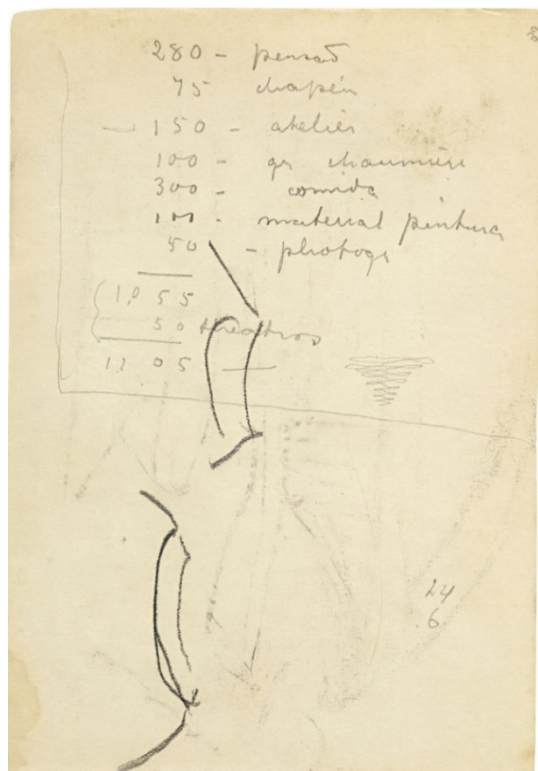 8
280 - pensão
75 chapéu
- 150 - atelier
100 - gr chaumière
300 - comida
100 - material pintura
50 - photogr
1,055
50 theatros
1105
24
6